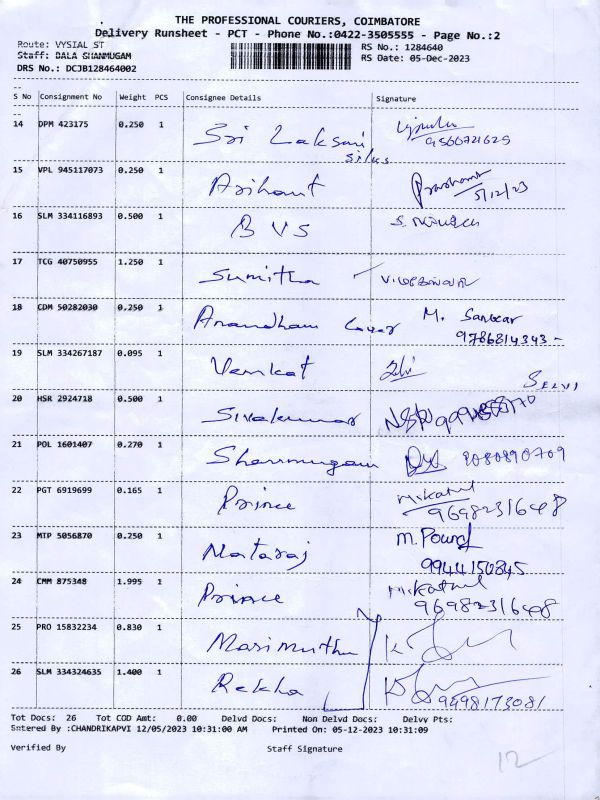 THE PROFESSIONAL COURIERS, COIMBATORE
Delivery Runsheet - PCT - Phone No.:0422-3505555 - Page No.:2
Route: VYSIAL ST
RS No.: 1284640
Staff: BALA SHANMUGAM
RS Date: 05-Dec-2023
DRS No.: DCJB128464002
S No Consignment No Weight PCS Consignee Details Signature
14 DPM 423175 0.250 1 Sri Laksmi
Silks
15 VPL 945117073 0.250 1 Arihant Prashant
5/12/23
16 SLM 334116893 0.500 1 B V S
17 TCG 40750955 1.250 1 Sumitha
18 CDM 50282030 0.250 1 Anandham Cover M. Sankar
9786814343 -
19 SLM 334267187 0.095 1 Venkat Selvi
SELVI
20 HSR 2924718 0.500 1 Sivakumar
21 POL 1601407 0.270 1 Shanmugam
22 PGT 6919699 0.165 1 Prince
9698231648
23 MTP 5056870 0.250 1 Nataraj
9944150845
24 CMM 875348 1.995 1 Prince
9698231648
25 PRO 15832234 0.830 1 Marimuthu
26 SLM 334324635 1.400 1 Rekha
9498173081
Tot Docs: 26 Tot COD Amt: 0.00 Delvd Docs: Non Delvd Docs: Delvy Pts:
Entered By :CHANDRIKAPVI 12/05/2023 10:31:00 AM Printed On: 05-12-2023 10:31:09
Verified By Staff Signature
12